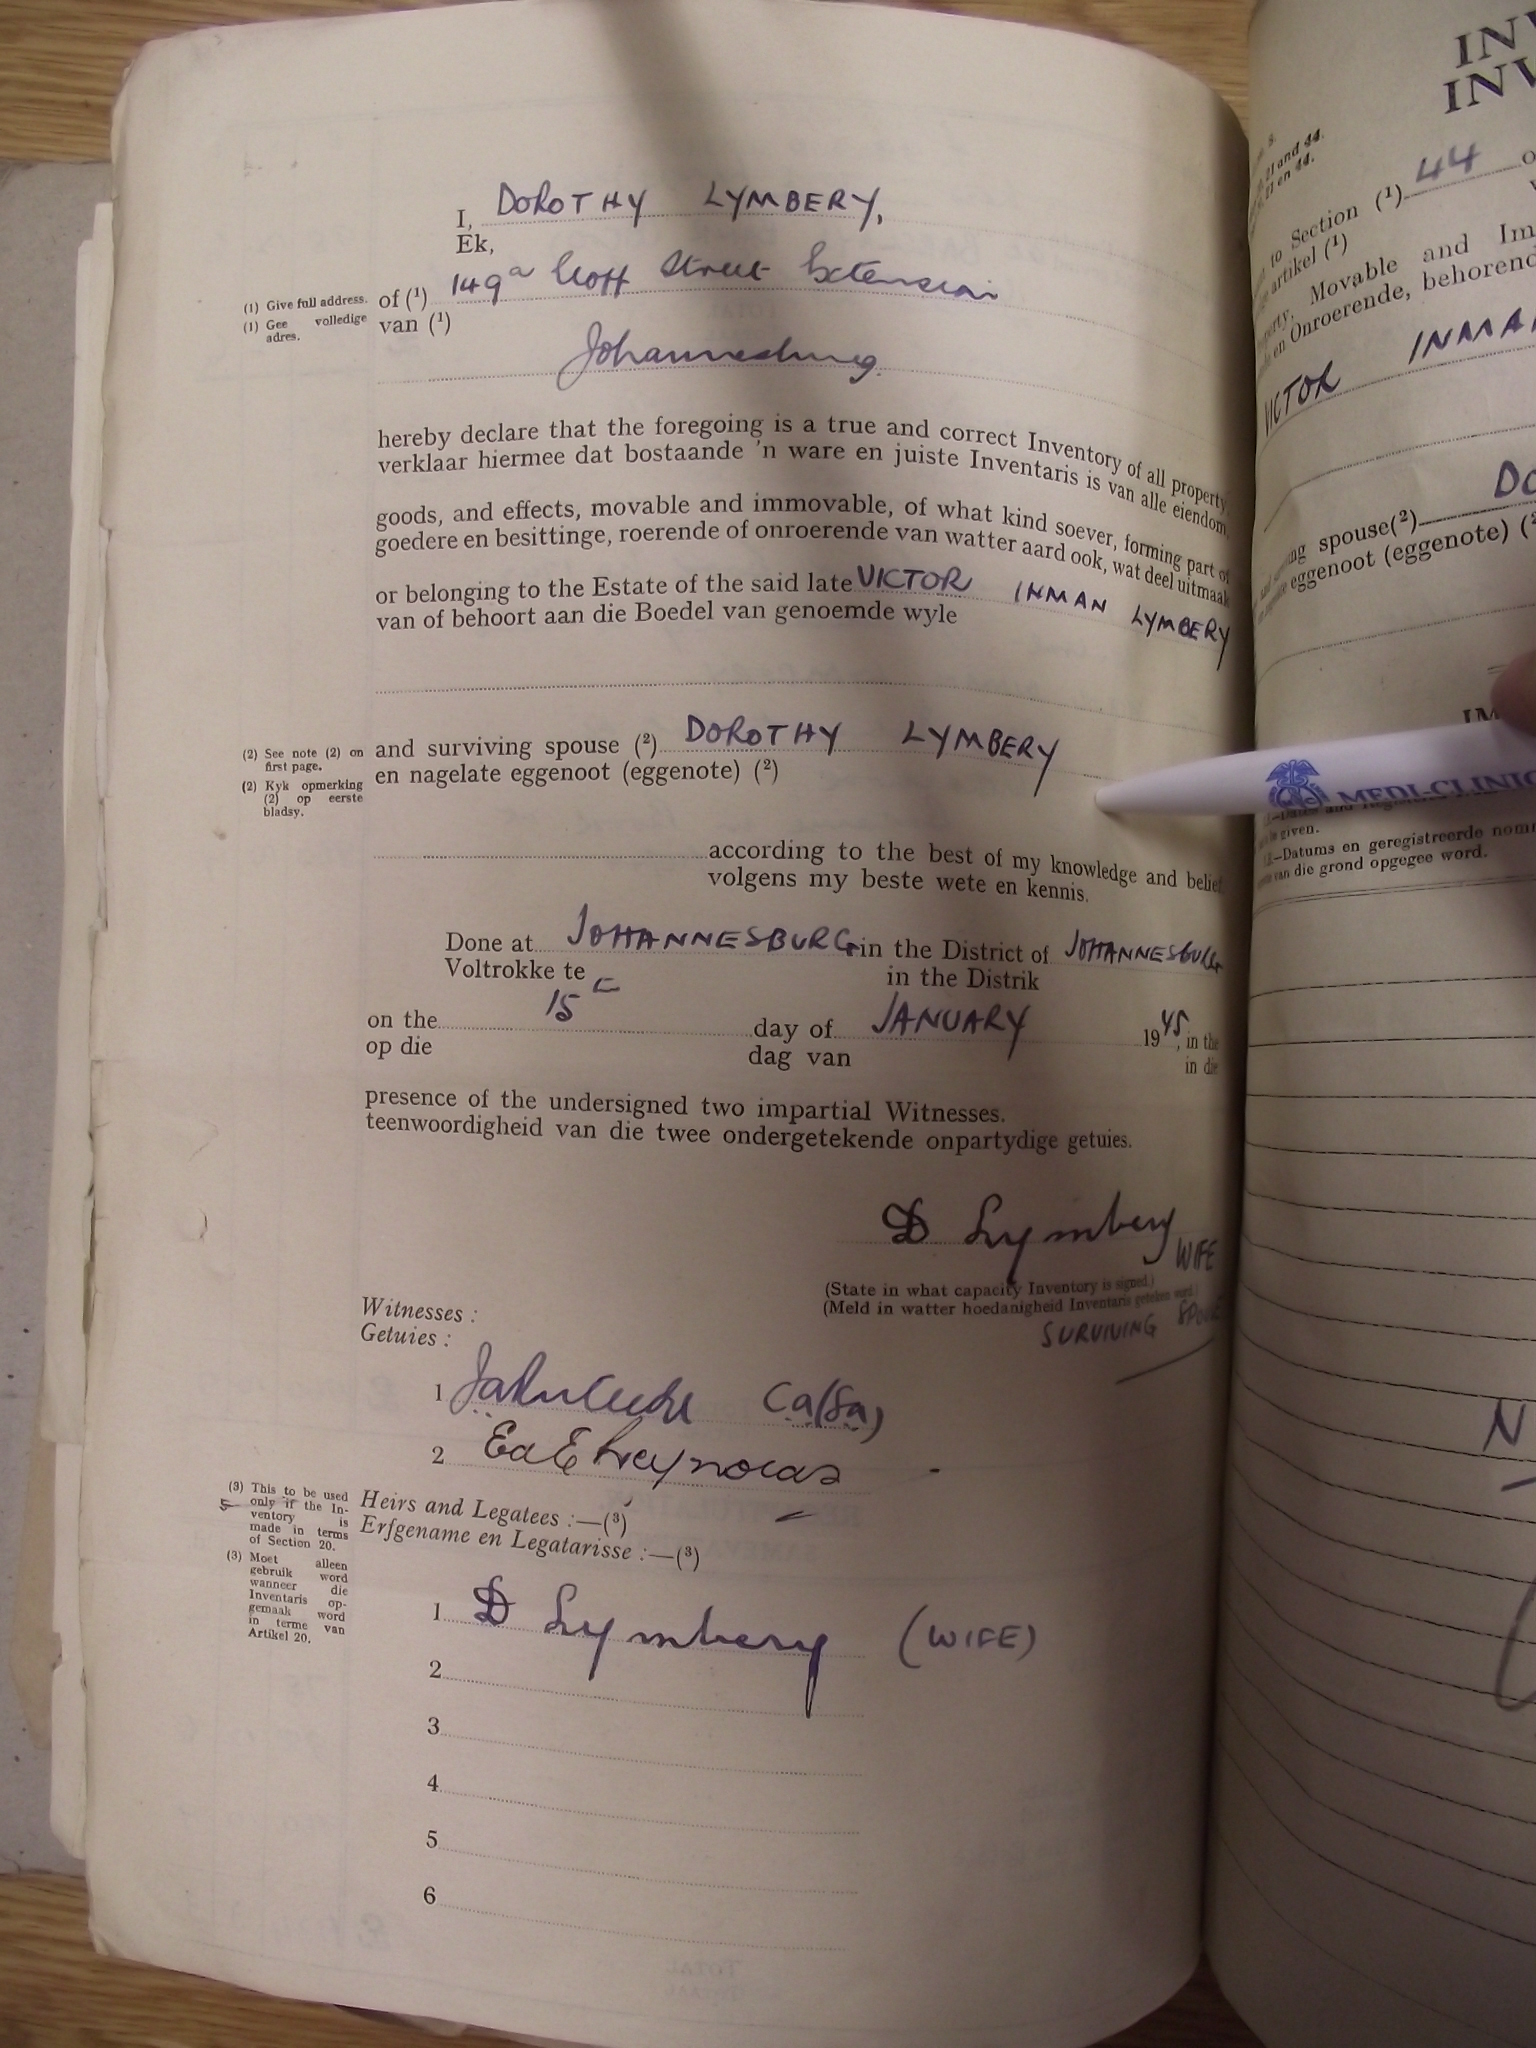 I, DOROTHY LYMBERY,
Ek,
(1) Give full address.
(1) Gee volledige
adres.
of (1) 149a Street Extension
van (1)
Johannesburg.
hereby declare that the foregoing is a true and correct Inventory of all property,
verklaar hiermee dat bostaande 'n ware en juiste Inventaris is van alle eiendom,
goods, and effects, movable and immovable, of what kind soever, forming part of
goedere en besittinge, roerende of onroerende van watter aard ook, wat deel uitmaak
or belonging to the Estate of the said late VICTOR INMAN LYMBERY
van of behoort aan die Boedel van genoemde wyle
(2) See note (2) on
first page.
(2) Kyk opmerking
(2) op eerste
bladsy.
and surviving spouse (2) DOROTHY LYMBERY
en nagelate eggenoot (eggenote) (2)
according to the best of my knowledge and belief
volgens my beste wete en kennis.
Done at JOHANNESBURG in the District of JOHANNESBURG
Voltrokke te in the Distrik
on the 15 day of JANUARY 1945, in the
op die dag van in die
presence of the undersigned two impartial Witnesses.
teenwoordigheid van die twee ondergetekende onpartydige getuies.
D Lymbery WIFE
(State in what capacity Inventory is signed.)
(Meld in watter hoedanigheid Inventaris geteken word.)
SURVIVING SPOUSE
Witnesses :
Getuies :
1 CA(SA)
2
(3) This to be used
only if the In-
ventory is
made in terms
of Section 20.
(3) Moet alleen
gebruik word
wanneer die
Inventaris op-
gemaak word
in terme van
Artikel 20.
Heirs and Legatees :—(3)
Erfgename en Legatarisse :—(3)
1 D Lymbery (WIFE)
2
3
4
5
6
21 and 44.
en 44.
to Section (1) 44
artikel (1)
Movable and Im
en Onroerende, behorend
VICTOR INMAN
spouse (2) DO
eggenoot (eggenote) (2
MEDI-CLINIC
given.
—Datums en geregistreerde nom
van die grond opgegee word.
N